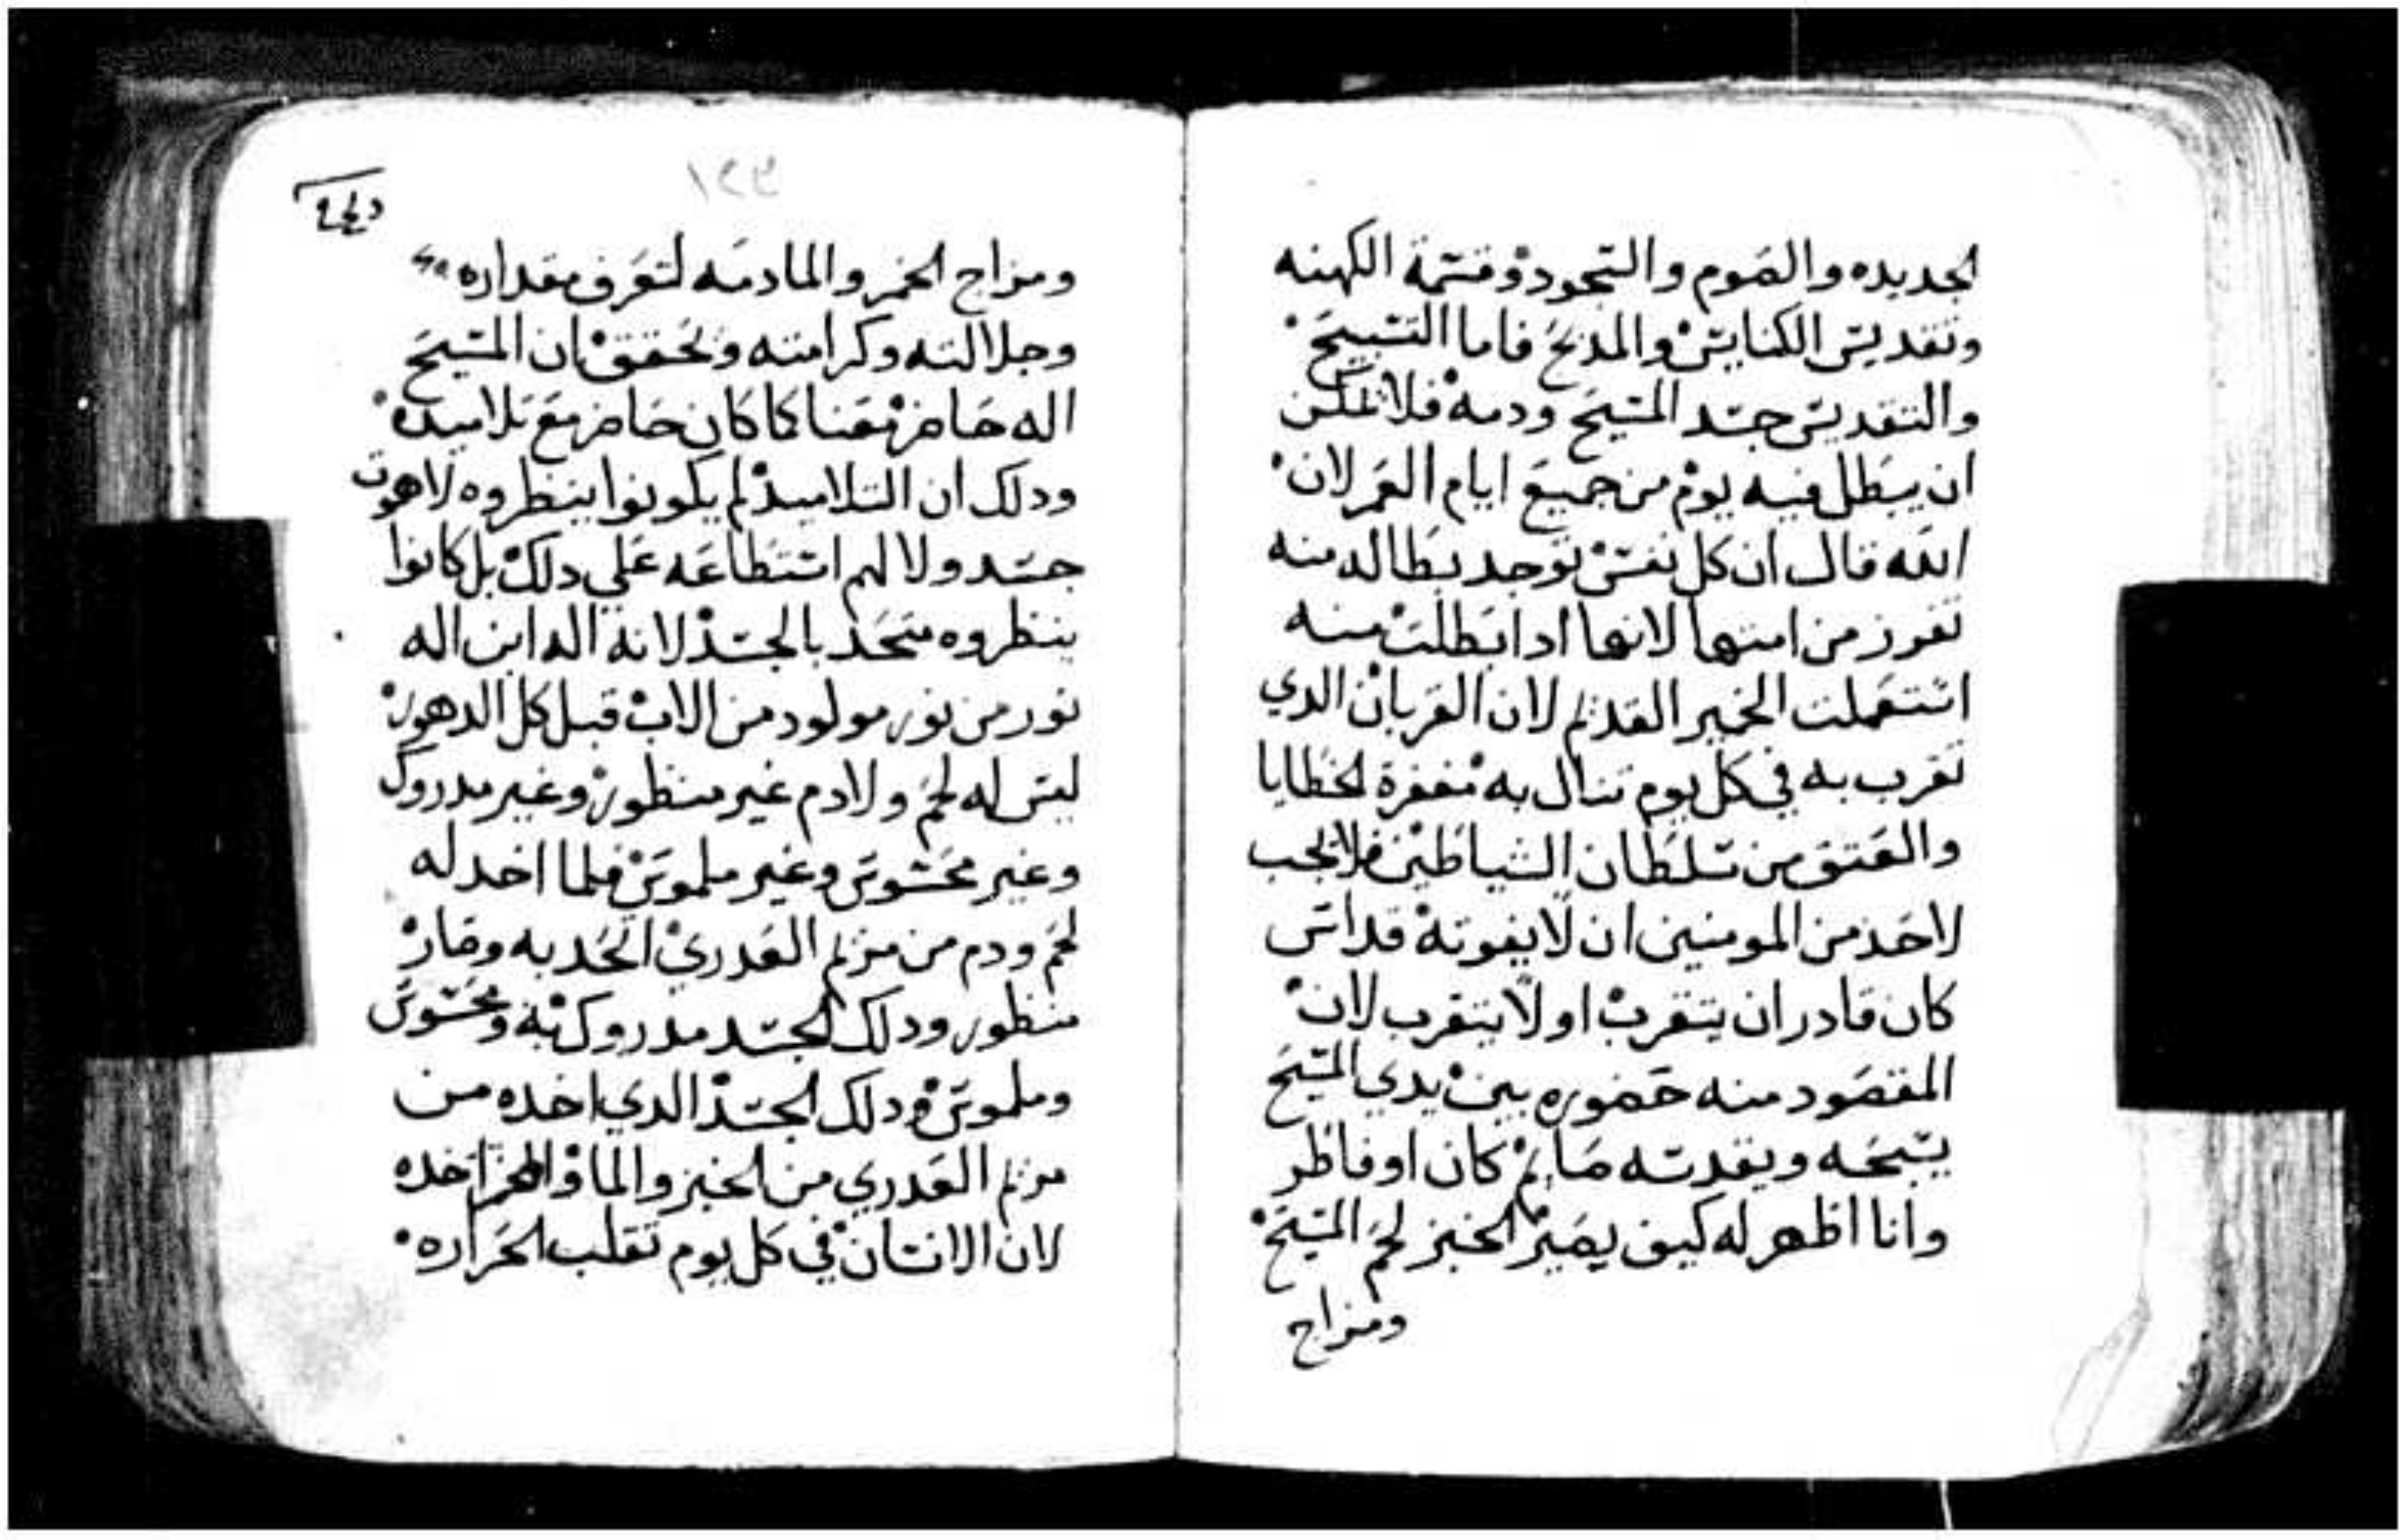 الجديده والصوم والسجود وقسمة الكهنه
وتقديس الكنايس والمدبح فاما التسبيح
والتقديس جسد المسيح ودمه فلا يمكن
ان يبطل فيه يوم من جميع ايام العمر لان
الله قال ان كل نفس توجد بطاله منه
تفرز من امتها لانها ادا بطلت منه
استعملت الخمير القديم لان القربان الدي
تقرب به في كل يوم تنال به مغفرة الخطايا
والعتق من سلطان الشياطين فلا يجب
لاحد من المومنين ان لا يفوته قداس
كان قادر ان يتقرب او لا يتقرب لان
المقصود منه حضوره بين يدي المسيح
يسبحه ويقدسه صايم كان او فاطر
وانا اظهر له كيف يصير الخبز لحم المسيح
ومزاج
١٢٩
ومزاج الخمر والما دمه لتعرف مقداره
وجلالته وكرامته وتحقق ان المسيح
اله حاضر معنا كما كان حاضر مع تلاميده
ودلك ان التلاميد لم يكونوا ينظروه لاهوت
جسد ولا لهم استطاعه علي دلك بل كانوا
ينظروه متحد بالجسد لانه اله ابن اله
نور من نور مولود من الاب قبل كل الدهور
ليس له لحم ولا دم غير منظور وغير مدروك
وغير محسوس وغير ملموس فلما اخد له
لحم ودم من مريم العدري اتحد به وصار
منظور ودلك الجسد مدروك به ومحسوس
وملموس ودلك الجسد الدي اخده من
مريم العدري من الخبز والما والخمر اخده
لان الانسان في كل يوم تقلب الحراره